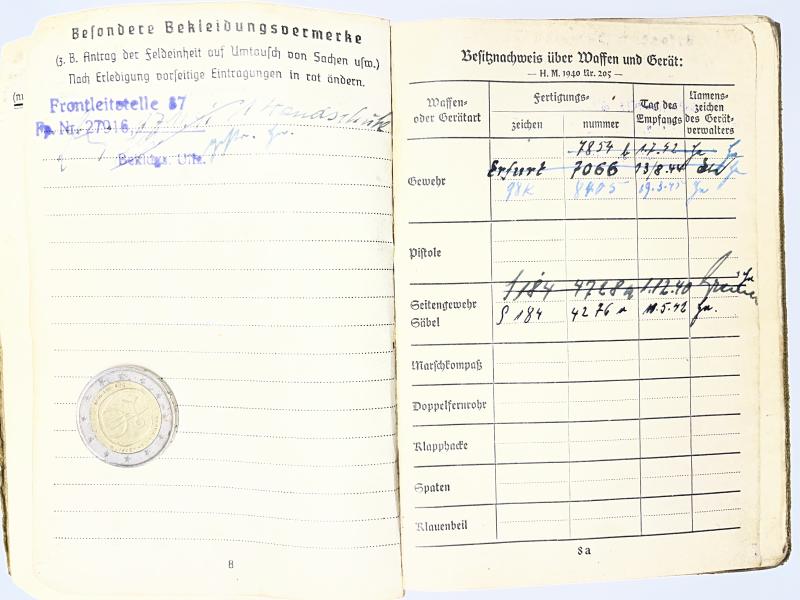 Besondere Bekleidungsvermerke
(z. B. Antrag der Feldeinheit auf Umtausch von Sachen usw.)
Nach Erledigung vorseitige Eintragungen in rot ändern.
Frontleitstelle 37
Fp. Nr. 27916
Bekldgs. Uffz.
8
Besitznachweis über Waffen und Gerät:
— H. M. 1940 Nr. 205 —
Waffen- oder Gerätart
Fertigungs-
zeichen
nummer
Tag des Empfangs
Namens- zeichen des Gerät- verwalters
7854 1.7.42
Gewehr
Erfurt 7066 13/8.44
98K 8405 19.3.45
Pistole
S 184 4768 1.12.40
Seitengewehr
Säbel
S 184 4276 11.5.42
Marschkompaß
Doppelfernrohr
Klapphacke
Spaten
Klauenbeil
8a